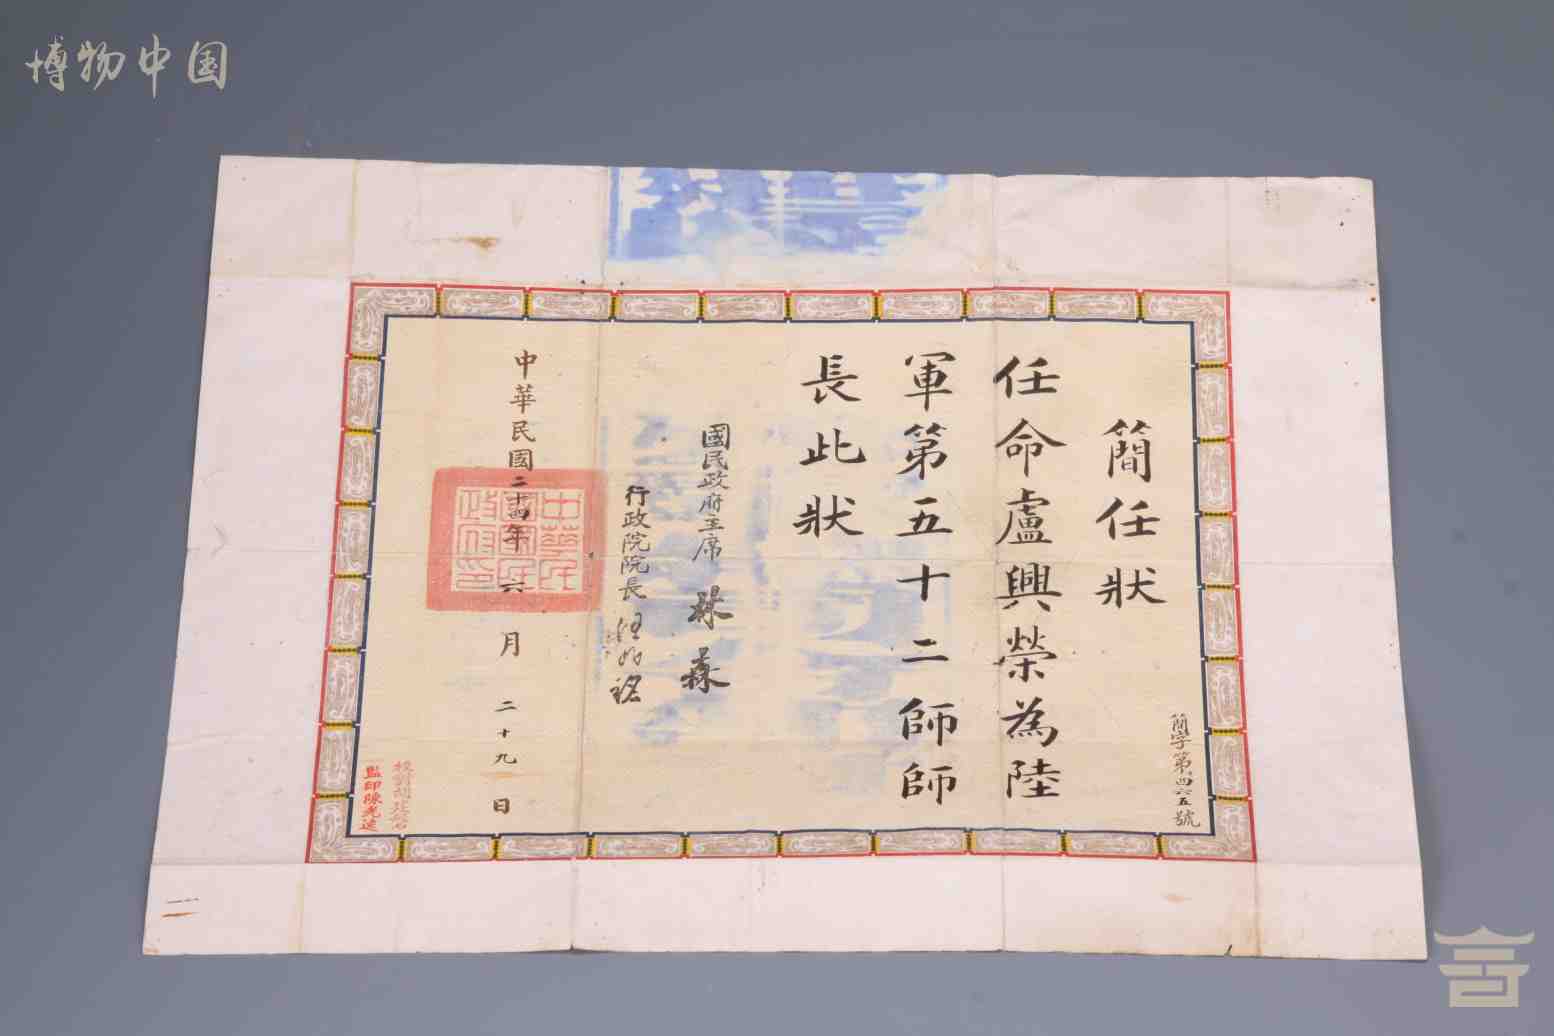 博物中国
簡任狀
任命盧興榮為陸
軍第五十二師師
長此狀
國民政府主席 林森
行政院院長 汪兆銘
中華民國二十四年六月二十九日
中華民國政府印
簡字第四六五號
監印陳光遠